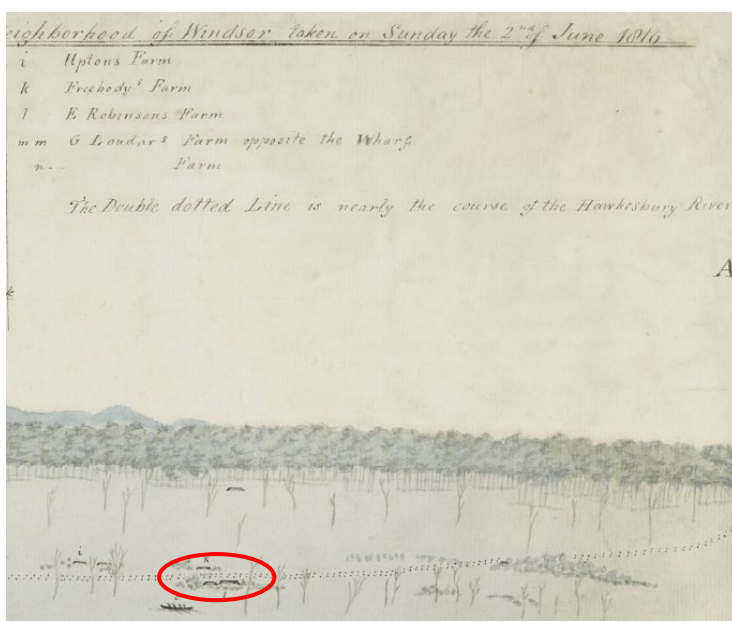 eighborhood of Windsor taken on Sunday the 2nd of June 1816
i Uptons Farm
k Freebodys Farm
l E Robinsons Farm
m m G Loudars Farm opposite the Wharf
n Farm
The Double dotted Line is nearly the course of the Hawkesbury River
A
k
i
k
l